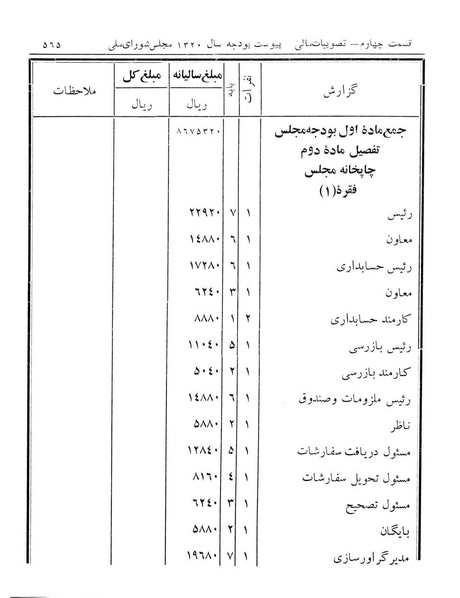 قسمت چهارم — تصویبات مالی پیوست بودجه سال ۱۳۲۰ مجلس شورای ملی ۵٦۵
گزارش نفرات پایه مبلغ سالیانه ریال مبلغ کل ریال ملاحظات
جمع مادهٔ اول بودجه مجلس ۸٦۷۵۳۲۰
تفصیل مادهٔ دوم
چاپخانه مجلس
فقرهٔ (۱)
رئیس ۱ ۷ ۲۲۹۲۰
معاون ۱ ٦ ۱٤۸۸۰
رئیس حسابداری ۱ ٦ ۱۷۲۸۰
معاون ۱ ۳ ٦۲٤۰
کارمند حسابداری ۲ ۱ ۸۸۸۰
رئیس بازرسی ۱ ۵ ۱۱۰٤۰
کارمند بازرسی ۱ ۲ ۵۰٤۰
رئیس ملزومات وصندوق ۱ ٦ ۱٤۸۸۰
ناظر ۱ ۲ ۵۸۸۰
مسئول دریافت سفارشات ۱ ۵ ۱۲۸٤۰
مسئول تحویل سفارشات ۱ ٤ ۸۱٦۰
مسئول تصحیح ۱ ۳ ٦۲٤۰
بایگان ۱ ۲ ۵۸۸۰
مدیرگراورسازی ۱ ۷ ۱۹٦۸۰